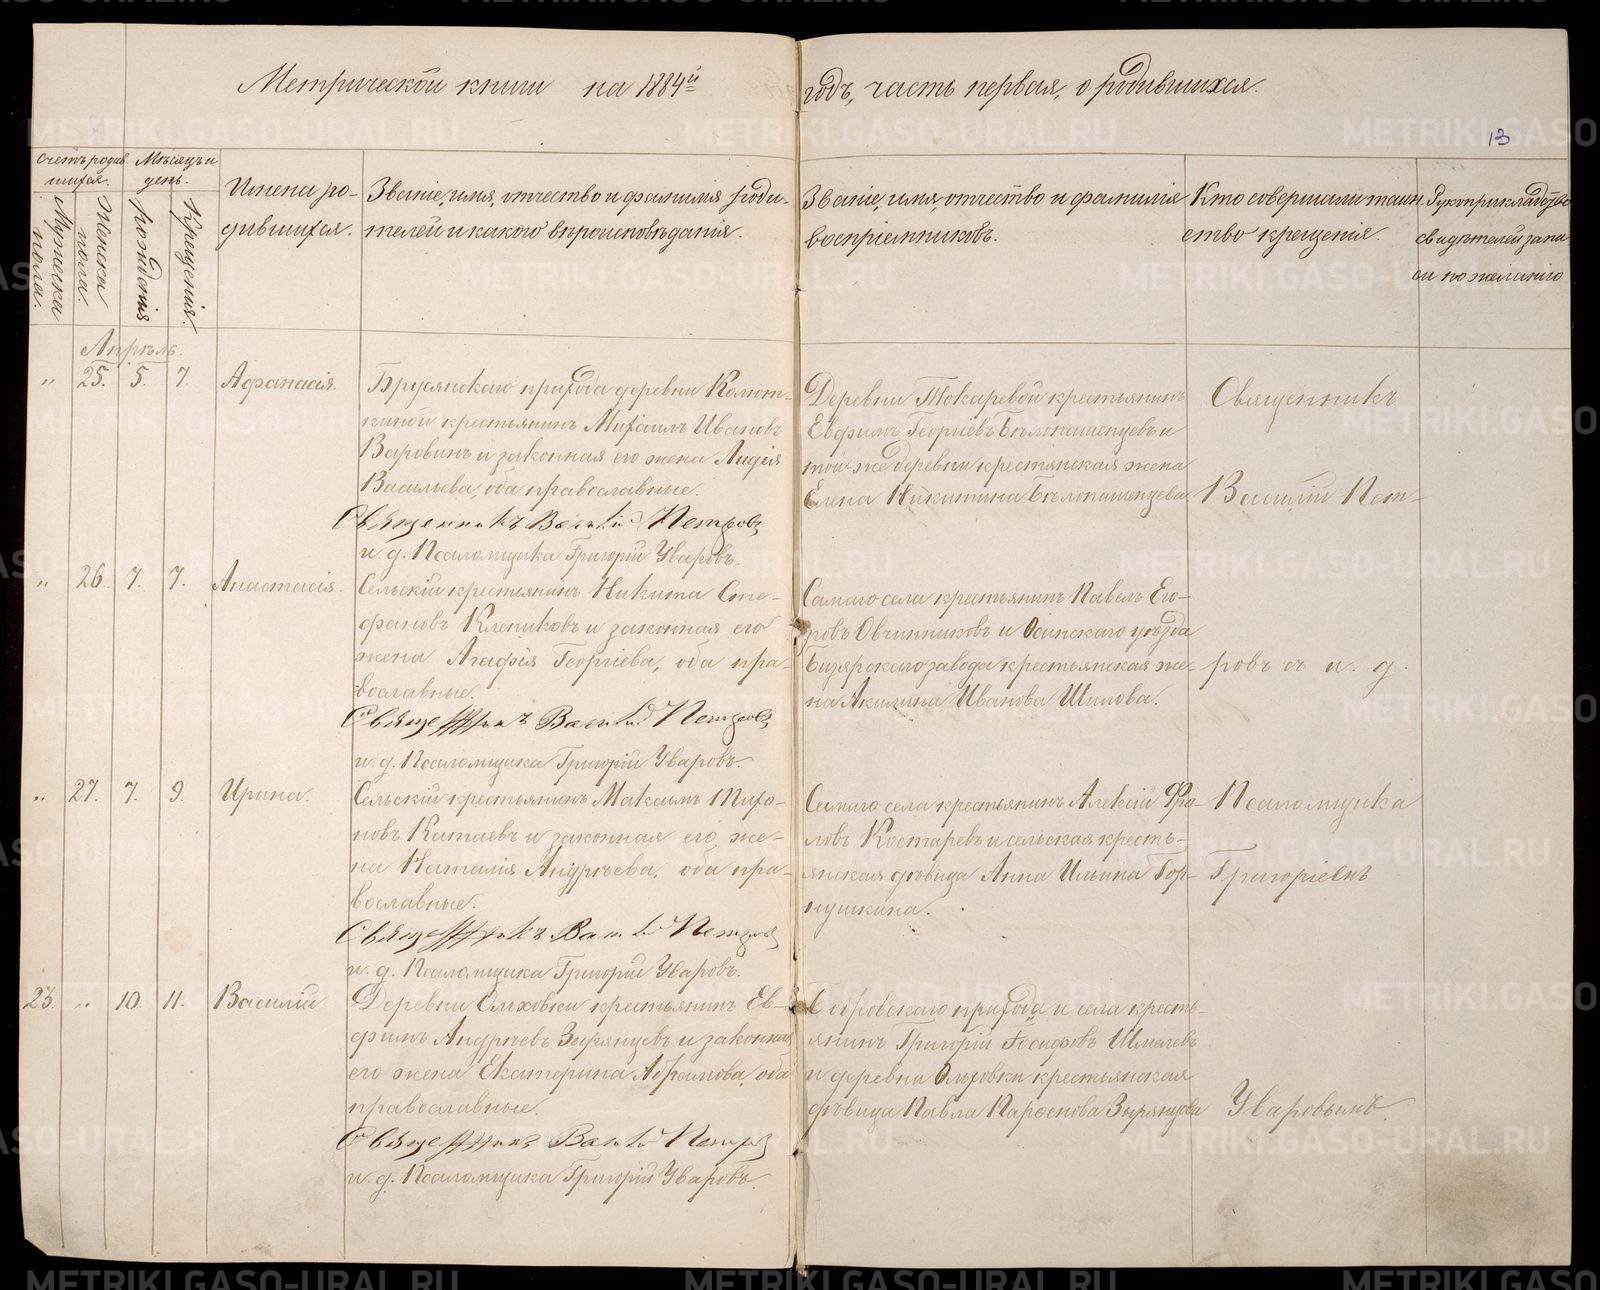 Метрической книги на 1884й годъ, часть первая, о родившихся.
13
Счетъ родив
шихся.
Мѣсяцъ и
день.
Мужеска
пола.
Женска
пола.
рожденія
Крещенія.
Имена ро-
дившихся.
Званіе, имя, отчество и фамилія роди-
телей и какого вѣроисповѣданія.
Званіе, имя, отчество и фамилія
воспріемниковъ.
Кто совершалъ таин
ство крещенія.
Рукоприкладство
свидѣтелей запи
си по желанію
Апрѣль.
" 25. 5. 7. Афанасія.
Брусянскаго прихода деревни Колют-
киной крестьянинъ Михаилъ Ивановъ
Варовинъ и законная его жена Лидія
Васильева, оба православные.
Священникъ Василій Петровъ
и. д. Псаломщика Григорій Уваровъ.
Деревни Токаревой крестьянинъ
Евфимъ Георгіевъ Бѣлопашенцевъ и
той-же деревни крестянская жена
Елена Никитина Бѣлопашенцева
Священникъ
Василій Пет-
" 26. 7. 7. Анастасія.
Сельскій крестьянинъ Никита Сте-
фановъ Клепиковъ и законная его
жена Агафія Георгіева, оба пра-
вославные.
Священникъ Василій Петровъ
и. д. Псаломщика Григорій Уваровъ.
Самаго села крестьянинъ Павелъ Его-
ровъ Овчинниковъ и Осинскаго уѣзда
Бизярскаго завода крестьянская же-
на Акилина Иванова Шилова.
ровъ съ и. д.
" 27. 7. 9. Ирина.
Сельскій крестьянинъ Максимъ Тихо-
новъ Китаевъ и законная его же-
на Наталія Андрѣева, оба пра-
вославные.
Священникъ Василій Петровъ
и. д. Псаломщика Григорій Уваровъ.
Самаго села крестьянинъ Алексій Фро-
ловъ Костаревъ и сельская кресть-
янская дѣвица Анна Ильина Гор-
пушкина.
Псаломщика
Григоріемъ
23. " 10. 11. Василій
Деревни Ольховки крестьянинъ Ев-
фимъ Андрѣевъ Зырянцевъ и законная
его жена Екатерина Абрамова, оба
православные.
Священникъ Василій Петровъ
и. д. Псаломщика Григорій Уваровъ.
Собровскаго прихода и села кресть-
янинъ Григорій Іосифовъ Шмелевъ
и деревни Ольховки крестьянская
дѣвица Павла Парѳенова Зырянцева
Уваровымъ.
METRIKI.GASO-URAL.RU